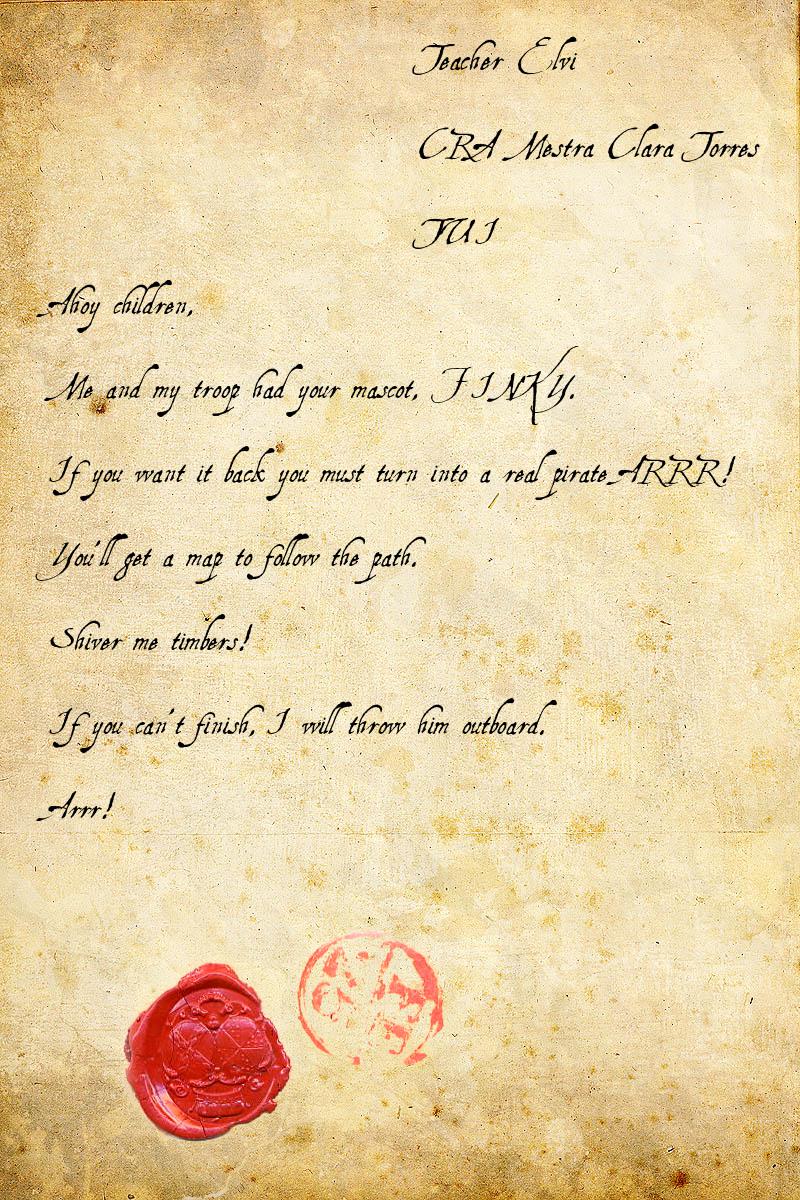 Teacher Elvi
CRA Mestra Clara Torres
TUI
Ahoy children,
Me and my troop had your mascot, FINKY.
If you want it back you must turn into a real pirate ARRR!
You'll get a map to follow the path.
Shiver me timbers!
If you can't finish, I will throw him outboard.
Arrr!